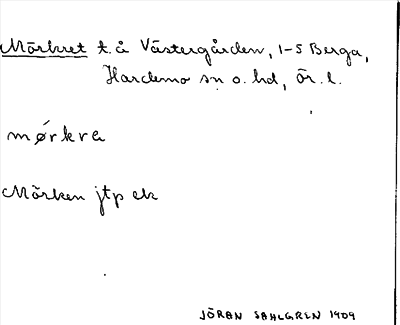 Mörkret t. å Västergården, 1-5 Berga,
Hardemo sn o. hd, Ör. l.
mǿrkra
Mörken jtp ek
JÖRAN SAHLGREN 1909